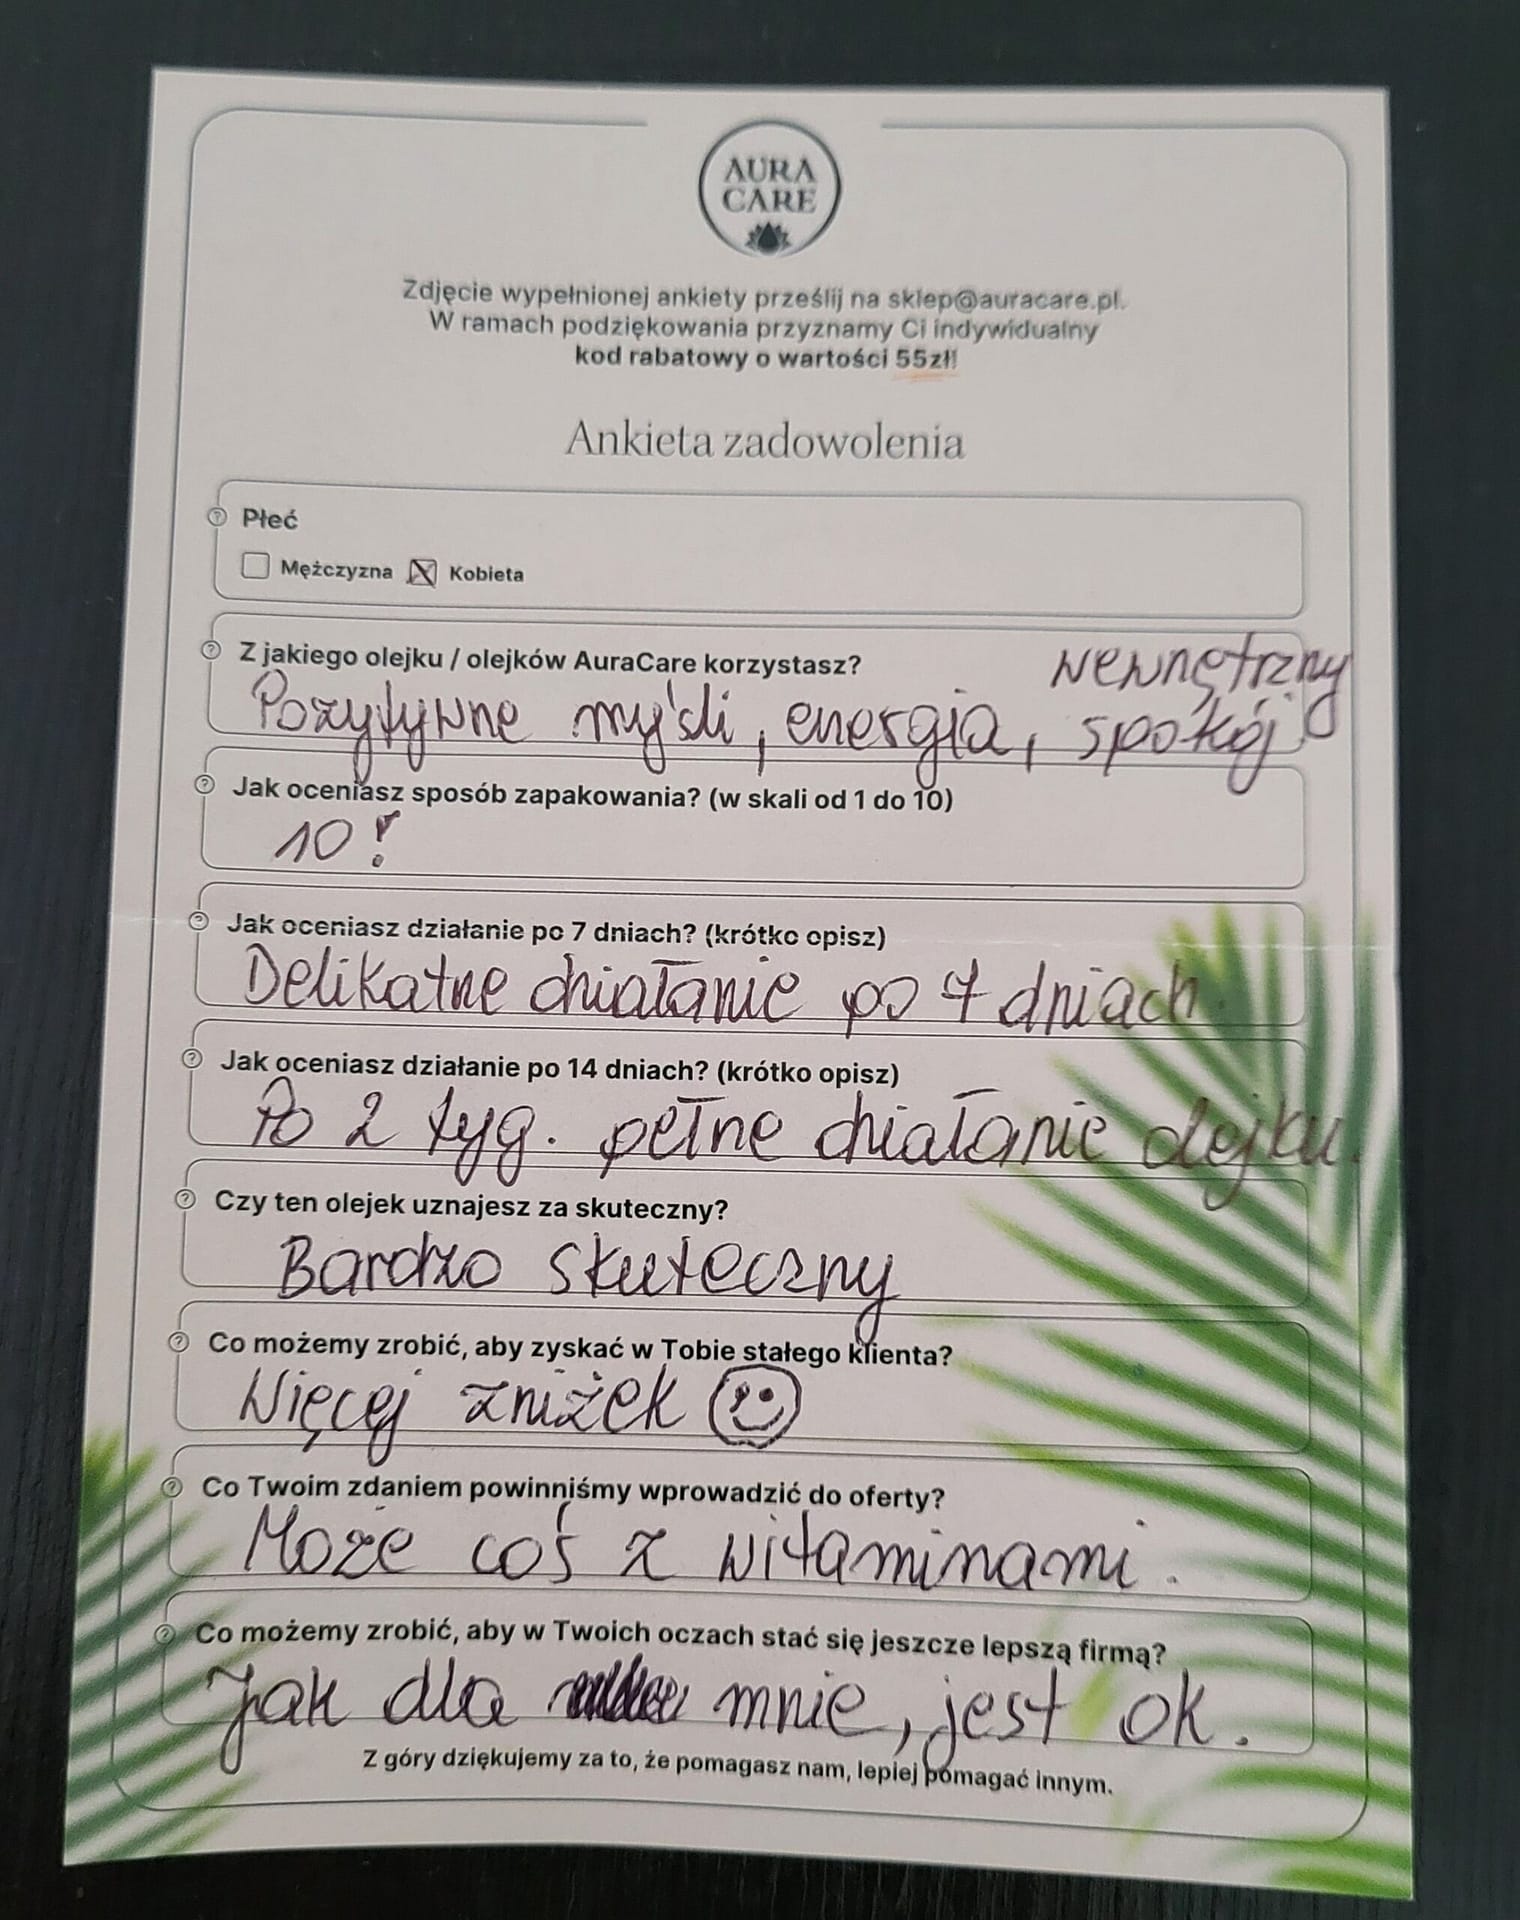 AURA
CARE
Zdjęcie wypełnionej ankiety prześlij na sklep@auracare.pl.
W ramach podziękowania przyznamy Ci indywidualny
kod rabatowy o wartości 55zł!
Ankieta zadowolenia
Płeć
Mężczyzna Kobieta
Z jakiego olejku / olejków AuraCare korzystasz?
wewnętrzny
Pozytywne myśli, energia, spokój
Jak oceniasz sposób zapakowania? (w skali od 1 do 10)
10!
Jak oceniasz działanie po 7 dniach? (krótko opisz)
Delikatne działanie po 7 dniach.
Jak oceniasz działanie po 14 dniach? (krótko opisz)
Po 2 tyg. pełne działanie olejku.
Czy ten olejek uznajesz za skuteczny?
Bardzo skuteczny
Co możemy zrobić, aby zyskać w Tobie stałego klienta?
Więcej zniżek
Co Twoim zdaniem powinniśmy wprowadzić do oferty?
Może coś z witaminami.
Co możemy zrobić, aby w Twoich oczach stać się jeszcze lepszą firmą?
Jak dla mnie, jest ok.
Z góry dziękujemy za to, że pomagasz nam, lepiej pomagać innym.